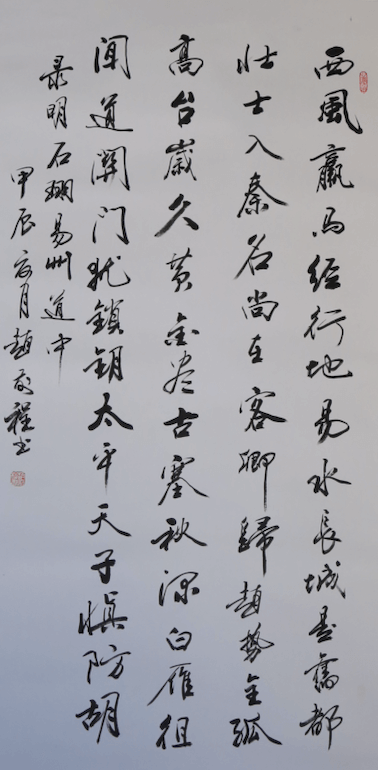 西風羸馬經行地易水長城是舊都
壯士入秦名尚在客卿歸趙勢全孤
高台歲久黃金盡古塞秋深白雁徂
聞道關門猶鎖鑰太平天子慎防胡
录明石珤易州道中
甲辰 月趙 程书